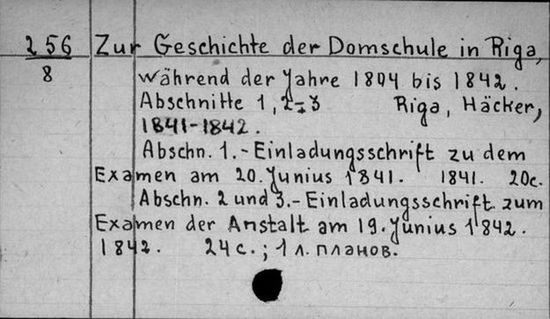 256 Zur Geschichte der Domschule in Riga,
8 während der Jahre 1804 bis 1842.
Abschnitte 1, 2-3 Riga, Häcker,
1841-1842.
Abschn. 1.- Einladungsschrift zu dem
Examen am 20. Junius 1841. 1841. 20c.
Abschn. 2 und 3.- Einladungsschrift zum
Examen der Anstalt am 19. Junius 1842.
1842. 24c.; 1 л. планов.